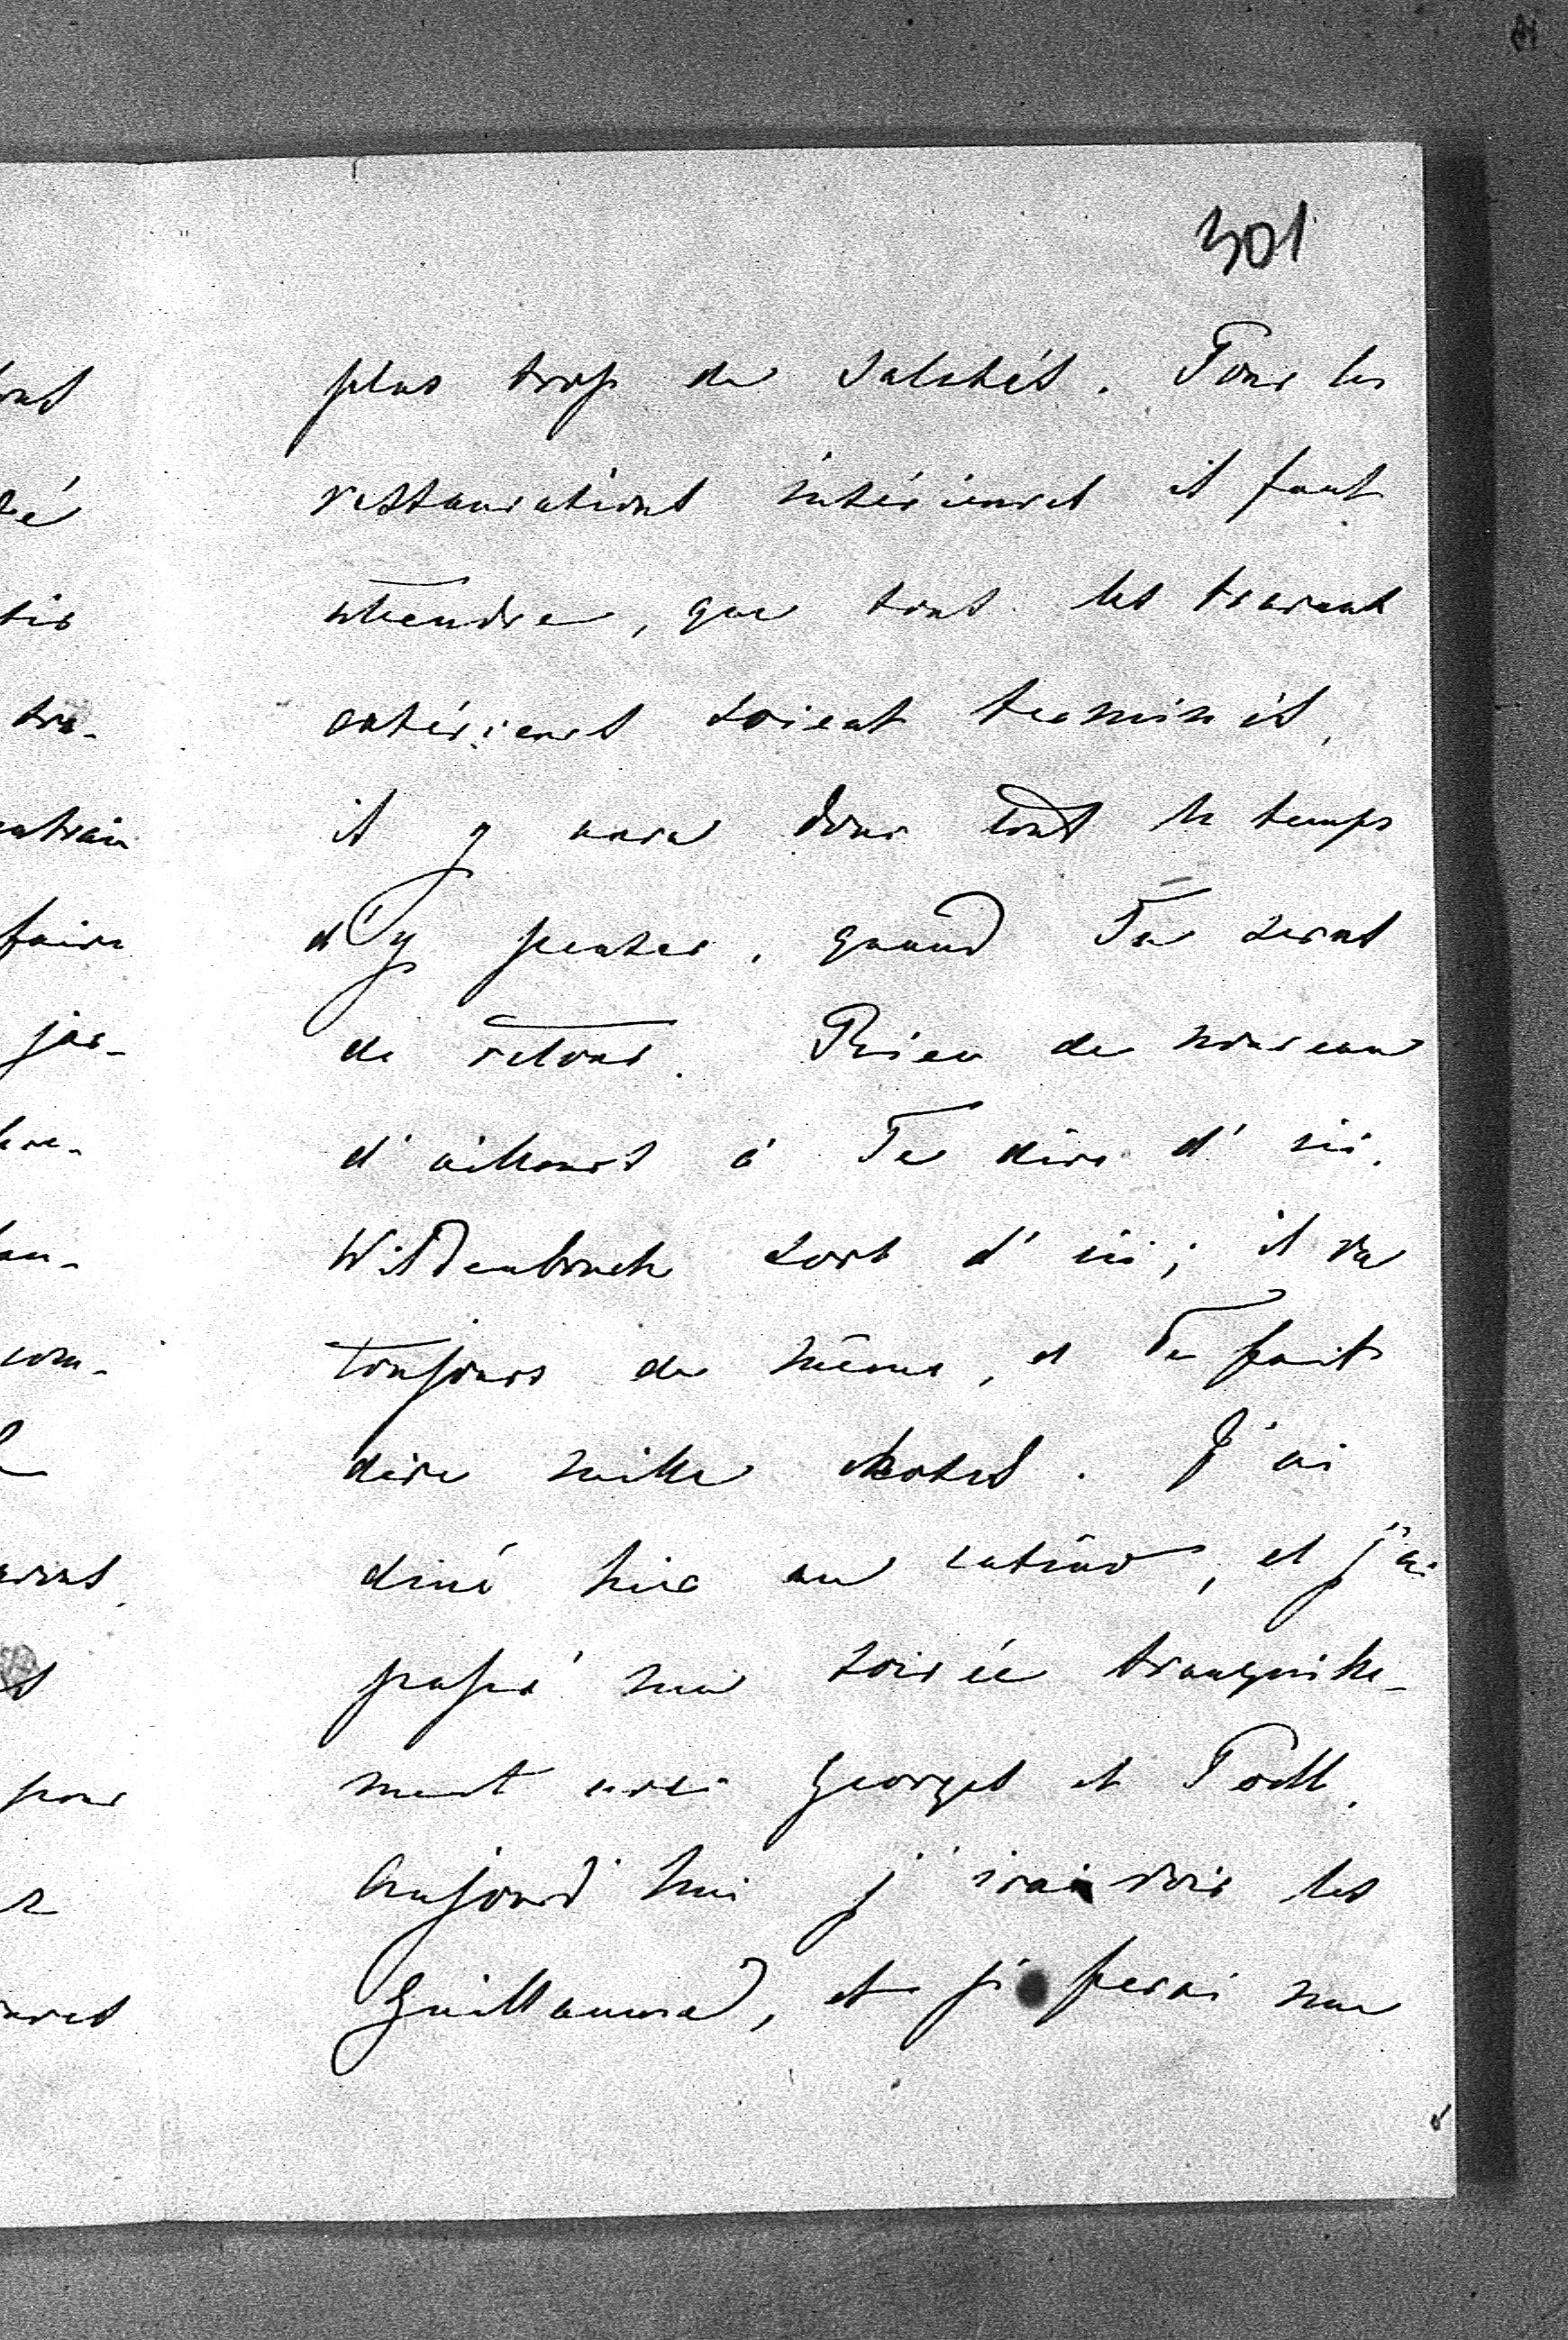 301
plus trop de saletés. Pour les
restaurations intérieures il faut
attendre, que tous les travaux
extérieurs soient terminés,
il y aura donc tout le temps
d'y penser, quand Tu seras
de retour. Rien de nouveau
d'ailleurs à Te dire d'ici.
Wildenbruch sort d'ici; il va
toujours de même, et Te fait
dire mille choses. J'ai
diné hier au cabinet, et j'ai
passé ma soirée tranquille-
ment avec Georges et Todt.
Aujourd'hui j'irai voir les
Guillaume, et je ferai une